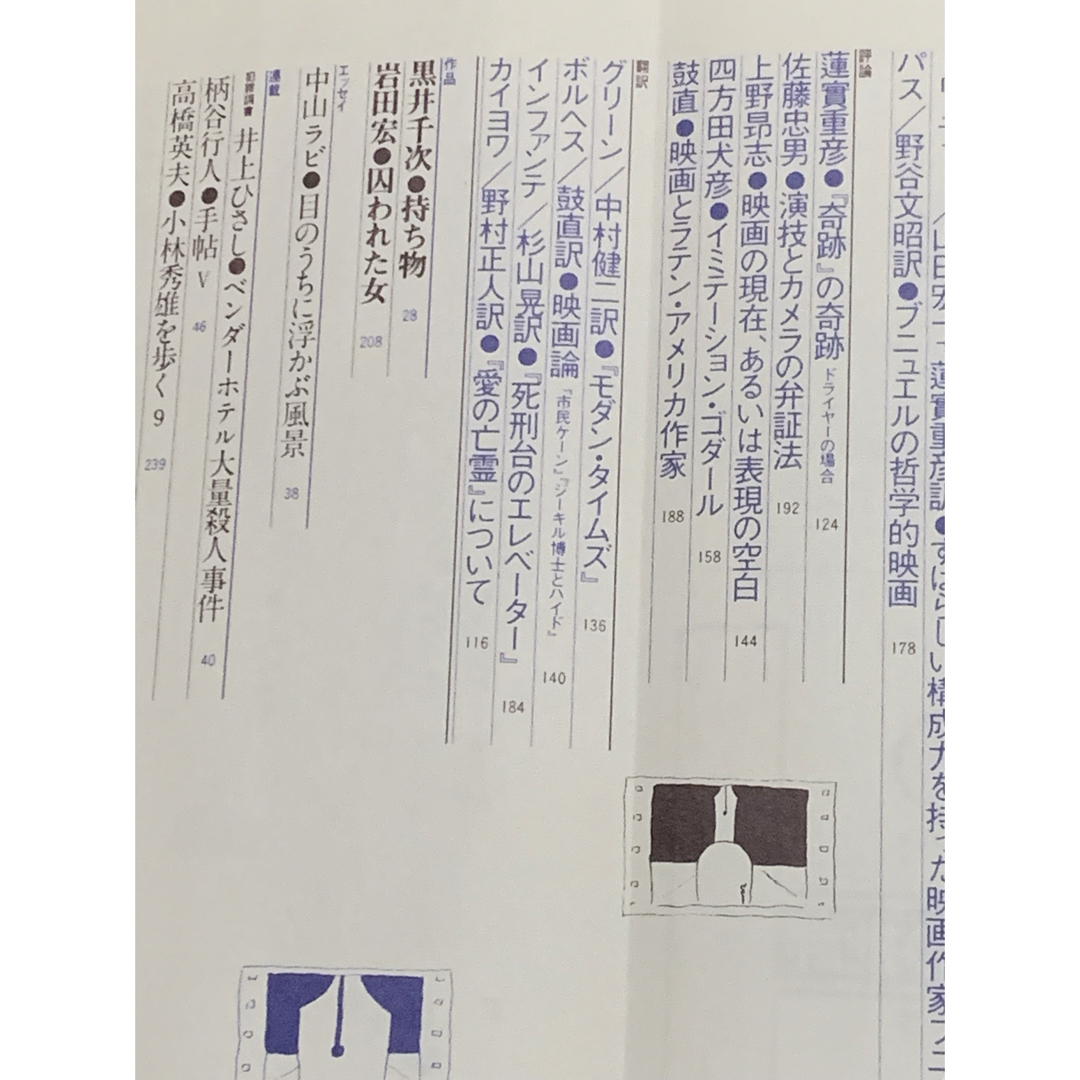 山田宏一／蓮實重彦訳●すばらしい構成力を持った映画作家
パス／野谷文昭訳●ブニュエルの哲学的映画 178
評論
蓮實重彦●『奇跡』の奇跡 ドライヤーの場合 124
佐藤忠男●演技とカメラの弁証法 192
上野昻志●映画の現在、あるいは表現の空白 144
四方田犬彦●イミテーション・ゴダール 158
鼓直●映画とラテン・アメリカ作家 188
翻訳
グリーン／中村健二訳●『モダン・タイムズ』 136
ボルヘス／鼓直訳●映画論 『市民ケーン』『ジーキル博士とハイド』 140
インファンテ／杉山晃訳●『死刑台のエレベーター』 184
カイヨワ／野村正人訳●『愛の亡霊』について 116
作品
黒井千次●持ち物 28
岩田宏●囚われた女 208
エッセイ
中山ラビ●目のうちに浮かぶ風景 38
連載
犯罪調書 井上ひさし●ベンダーホテル大量殺人事件 40
柄谷行人●手帖 V 46
高橋英夫●小林秀雄を歩く 9 239